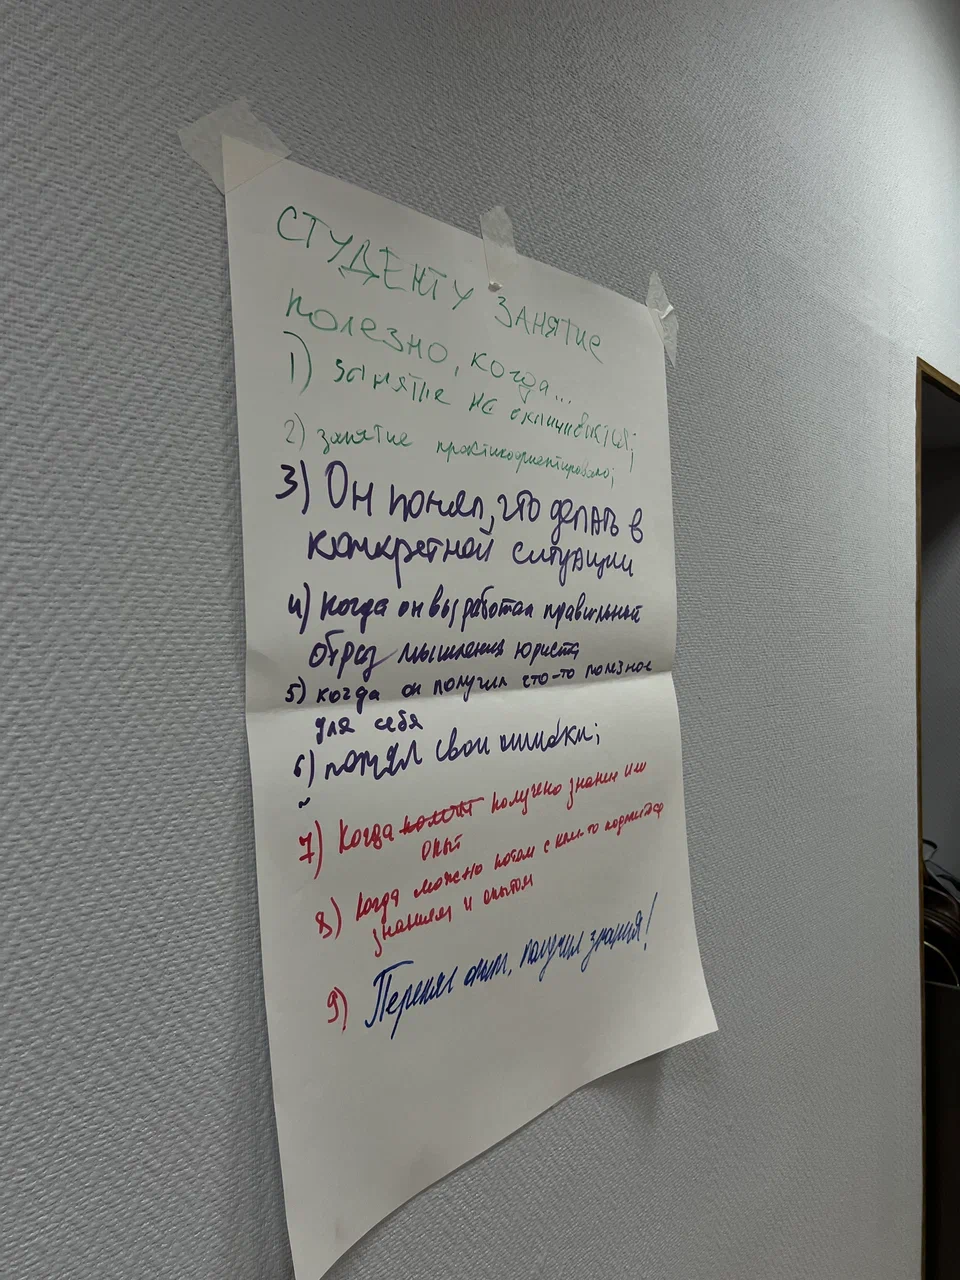 СТУДЕНТУ ЗАНЯТИЕ
ПОЛЕЗНО, КОГДА...
1) занятие не оканчивается;
2) занятие практикоориентировано;
3) Он понял, что делать в
конкретной ситуации
4) когда он выработал правильный
образ мышления юриста
5) когда он получил что-то полезное
для себя
6) понял свои ошибки;
7) Когда получено знание или
опыт
8) когда можно потом с кем-то поделиться
знанием и опытом
9) Перенял опыт, получил знания!